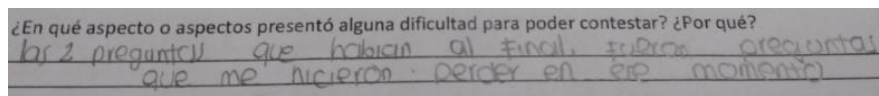 ¿En qué aspecto o aspectos presentó alguna dificultad para poder contestar? ¿Por qué?
las 2 preguntas que habian al final, fueron preguntas
que me hicieron perder en ese momento